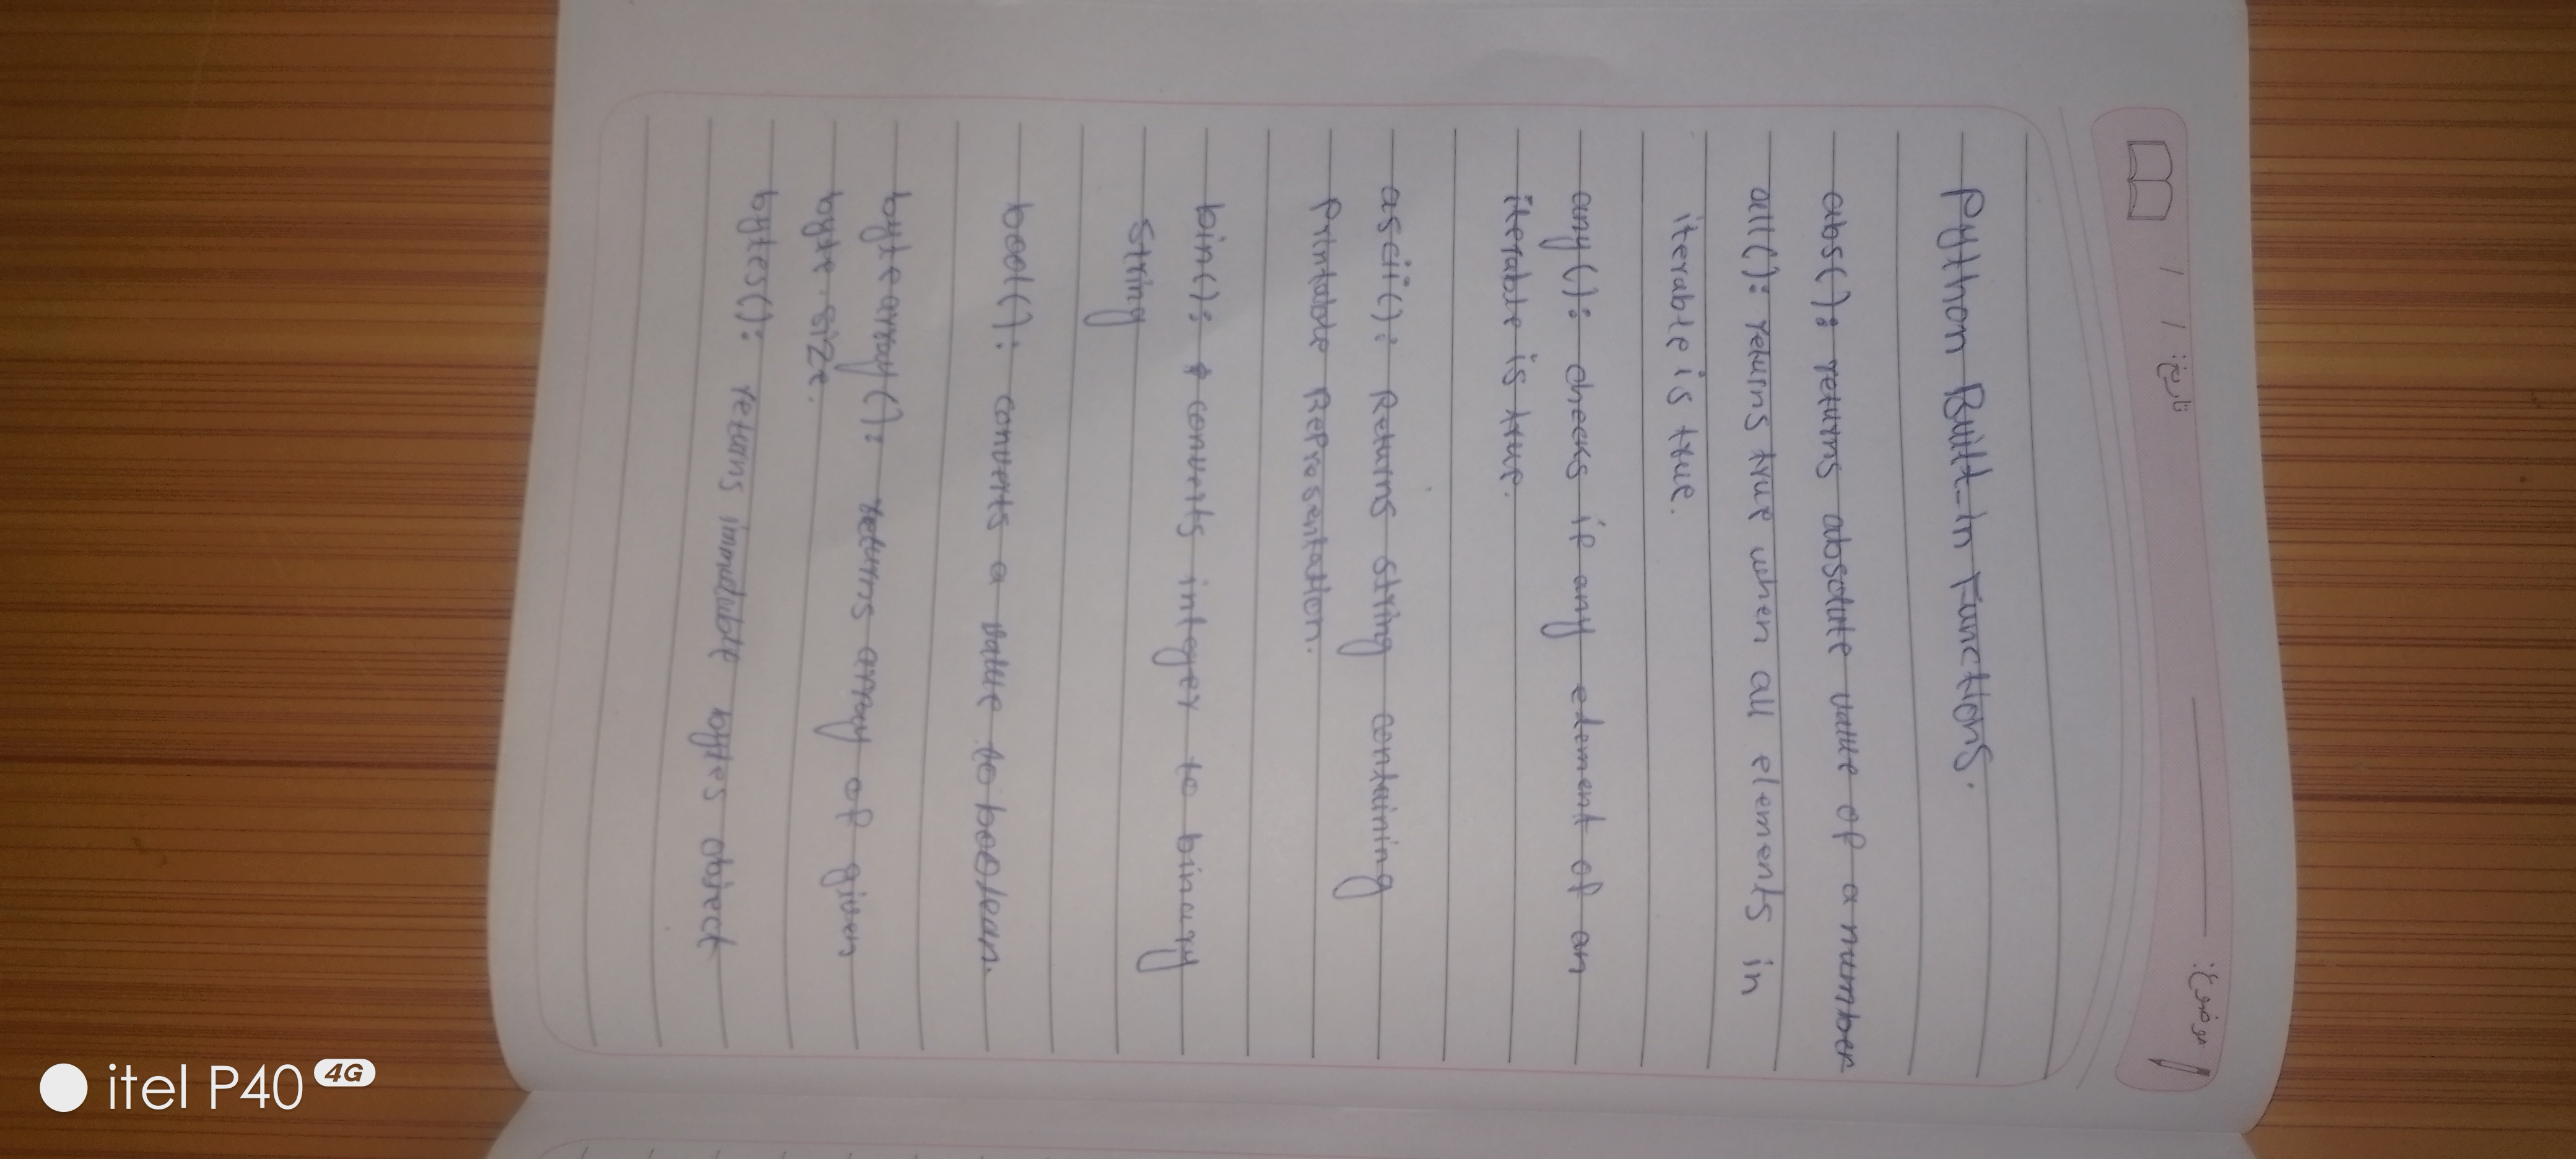 تاریخ: / /
موضوع:
Python Built-in Functions.
abs(): returns absolute value of a number
all(): returns true when all elements in
iterable is true.
any(): checks if any element of an
iterable is true.
ascii(): Returns string containing
Printable Representation.
bin(): converts integer to binary
string
bool(): converts a value to boolean.
bytearray(): returns array of given
byte size.
bytes(): retuns immutable bytes object
itel P40 4G